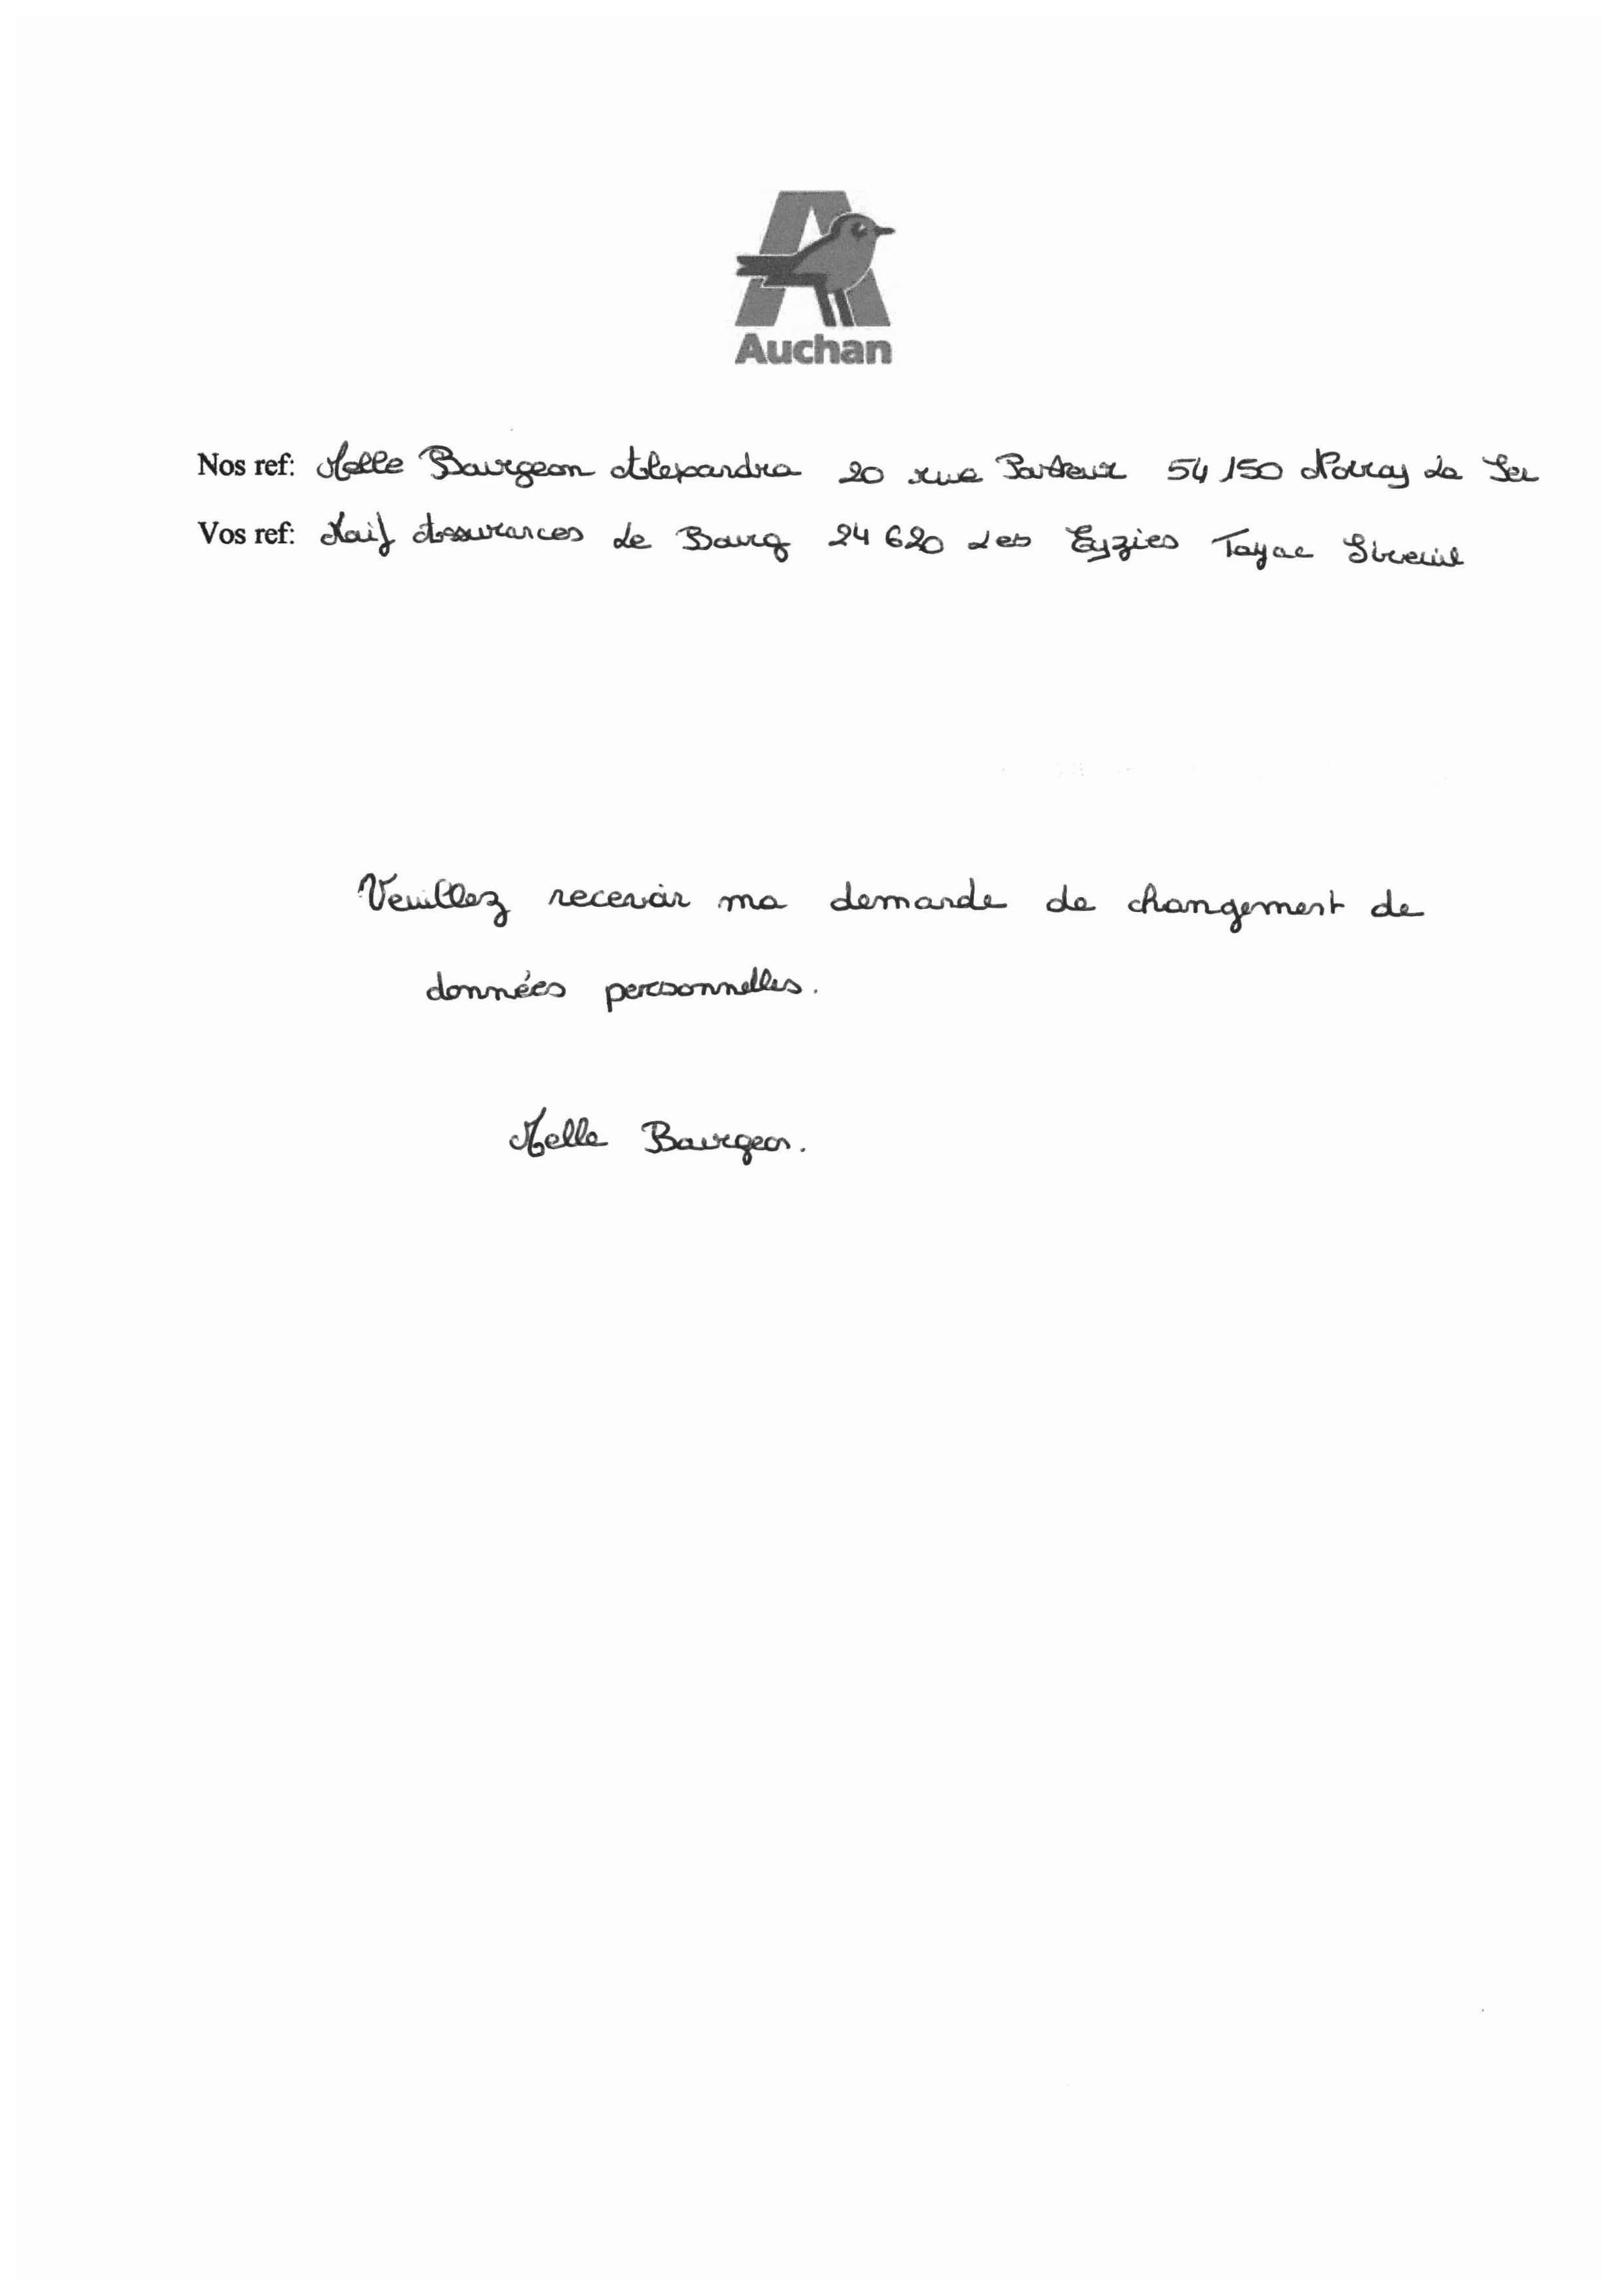 Auchan
Nos ref: Melle Bourgeon Alexandra 20 rue Pasteur 54 150 Norroy le Sec
Vos ref: Maif Assurances le Bourg 24 620 Les Eyzies Tayac Sireuil
Veuillez recevoir ma demande de changement de
données personnelles.
Melle Bourgeon.